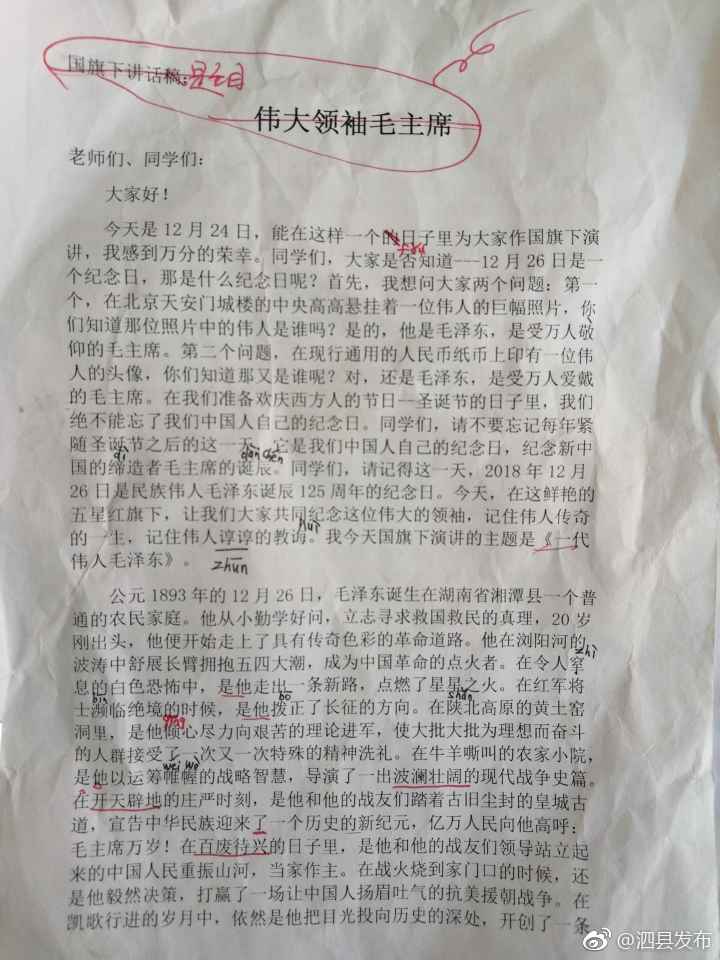 国旗下讲话稿:
伟大领袖毛主席
老师们、同学们：
大家好！
今天是 12 月 24 日，能在这样一个的日子里为大家作国旗下演
讲，我感到万分的荣幸。同学们，大家是否知道---12 月 26 日是一
fǒu
个纪念日，那是什么纪念日呢？首先，我想问大家两个问题：第一
个，在北京天安门城楼的中央高高悬挂着一位伟人的巨幅照片，你
们知道那位照片中的伟人是谁吗？是的，他是毛泽东，是受万人敬
仰的毛主席。第二个问题，在现行通用的人民币纸币上印有一位伟
人的头像，你们知道那又是谁呢？对，还是毛泽东，是受万人爱戴
的毛主席。在我们准备欢庆西方人的节日—圣诞节的日子里，我们
绝不能忘了我们中国人自己的纪念日。同学们，请不要忘记每年紧
随圣诞节之后的这一天，它是我们中国人自己的纪念日，纪念新中
dì dàn chén
国的缔造者毛主席的诞辰。同学们，请记得这一天，2018 年 12 月
26 日是民族伟人毛泽东诞辰 125 周年的纪念日。今天，在这鲜艳的
五星红旗下，让我们大家共同纪念这位伟大的领袖，记住伟人传奇
huì
的一生，记住伟人谆谆的教诲。我今天国旗下演讲的主题是《一代
zhūn
伟人毛泽东》。
公元 1893 年的 12 月 26 日，毛泽东诞生在湖南省湘潭县一个普
通的农民家庭。他从小勤学好问，立志寻求救国救民的真理，20 岁
刚出头，他便开始走上了具有传奇色彩的革命道路。他在浏阳河的
波涛中舒展长臂拥抱五四大潮，成为中国革命的点火者。在令人窒
zhì
息的白色恐怖中，是他走出一条新路，点燃了星星之火。在红军将
bīn bō shǎn
士濒临绝境的时候，是他拨正了长征的方向。在陕北高原的黄土窑
qīng
洞里，是他倾心尽力向艰苦的理论进军，使大批大批为理想而奋斗
的人群接受了一次又一次特殊的精神洗礼。在牛羊嘶叫的农家小院，
wéi wò
是他以运筹帷幄的战略智慧，导演了一出波澜壮阔的现代战争史篇。
在开天辟地的庄严时刻，是他和他的战友们踏着古旧尘封的皇城古
道，宣告中华民族迎来了一个历史的新纪元，亿万人民向他高呼：
毛主席万岁！在百废待兴的日子里，是他和他的战友们领导站立起
来的中国人民重振山河，当家作主。在战火烧到家门口的时候，还
是他毅然决策，打赢了一场让中国人扬眉吐气的抗美援朝战争。在
凯歌行进的岁月中，依然是他把目光投向历史的深处，开创了一条
@泗县发布